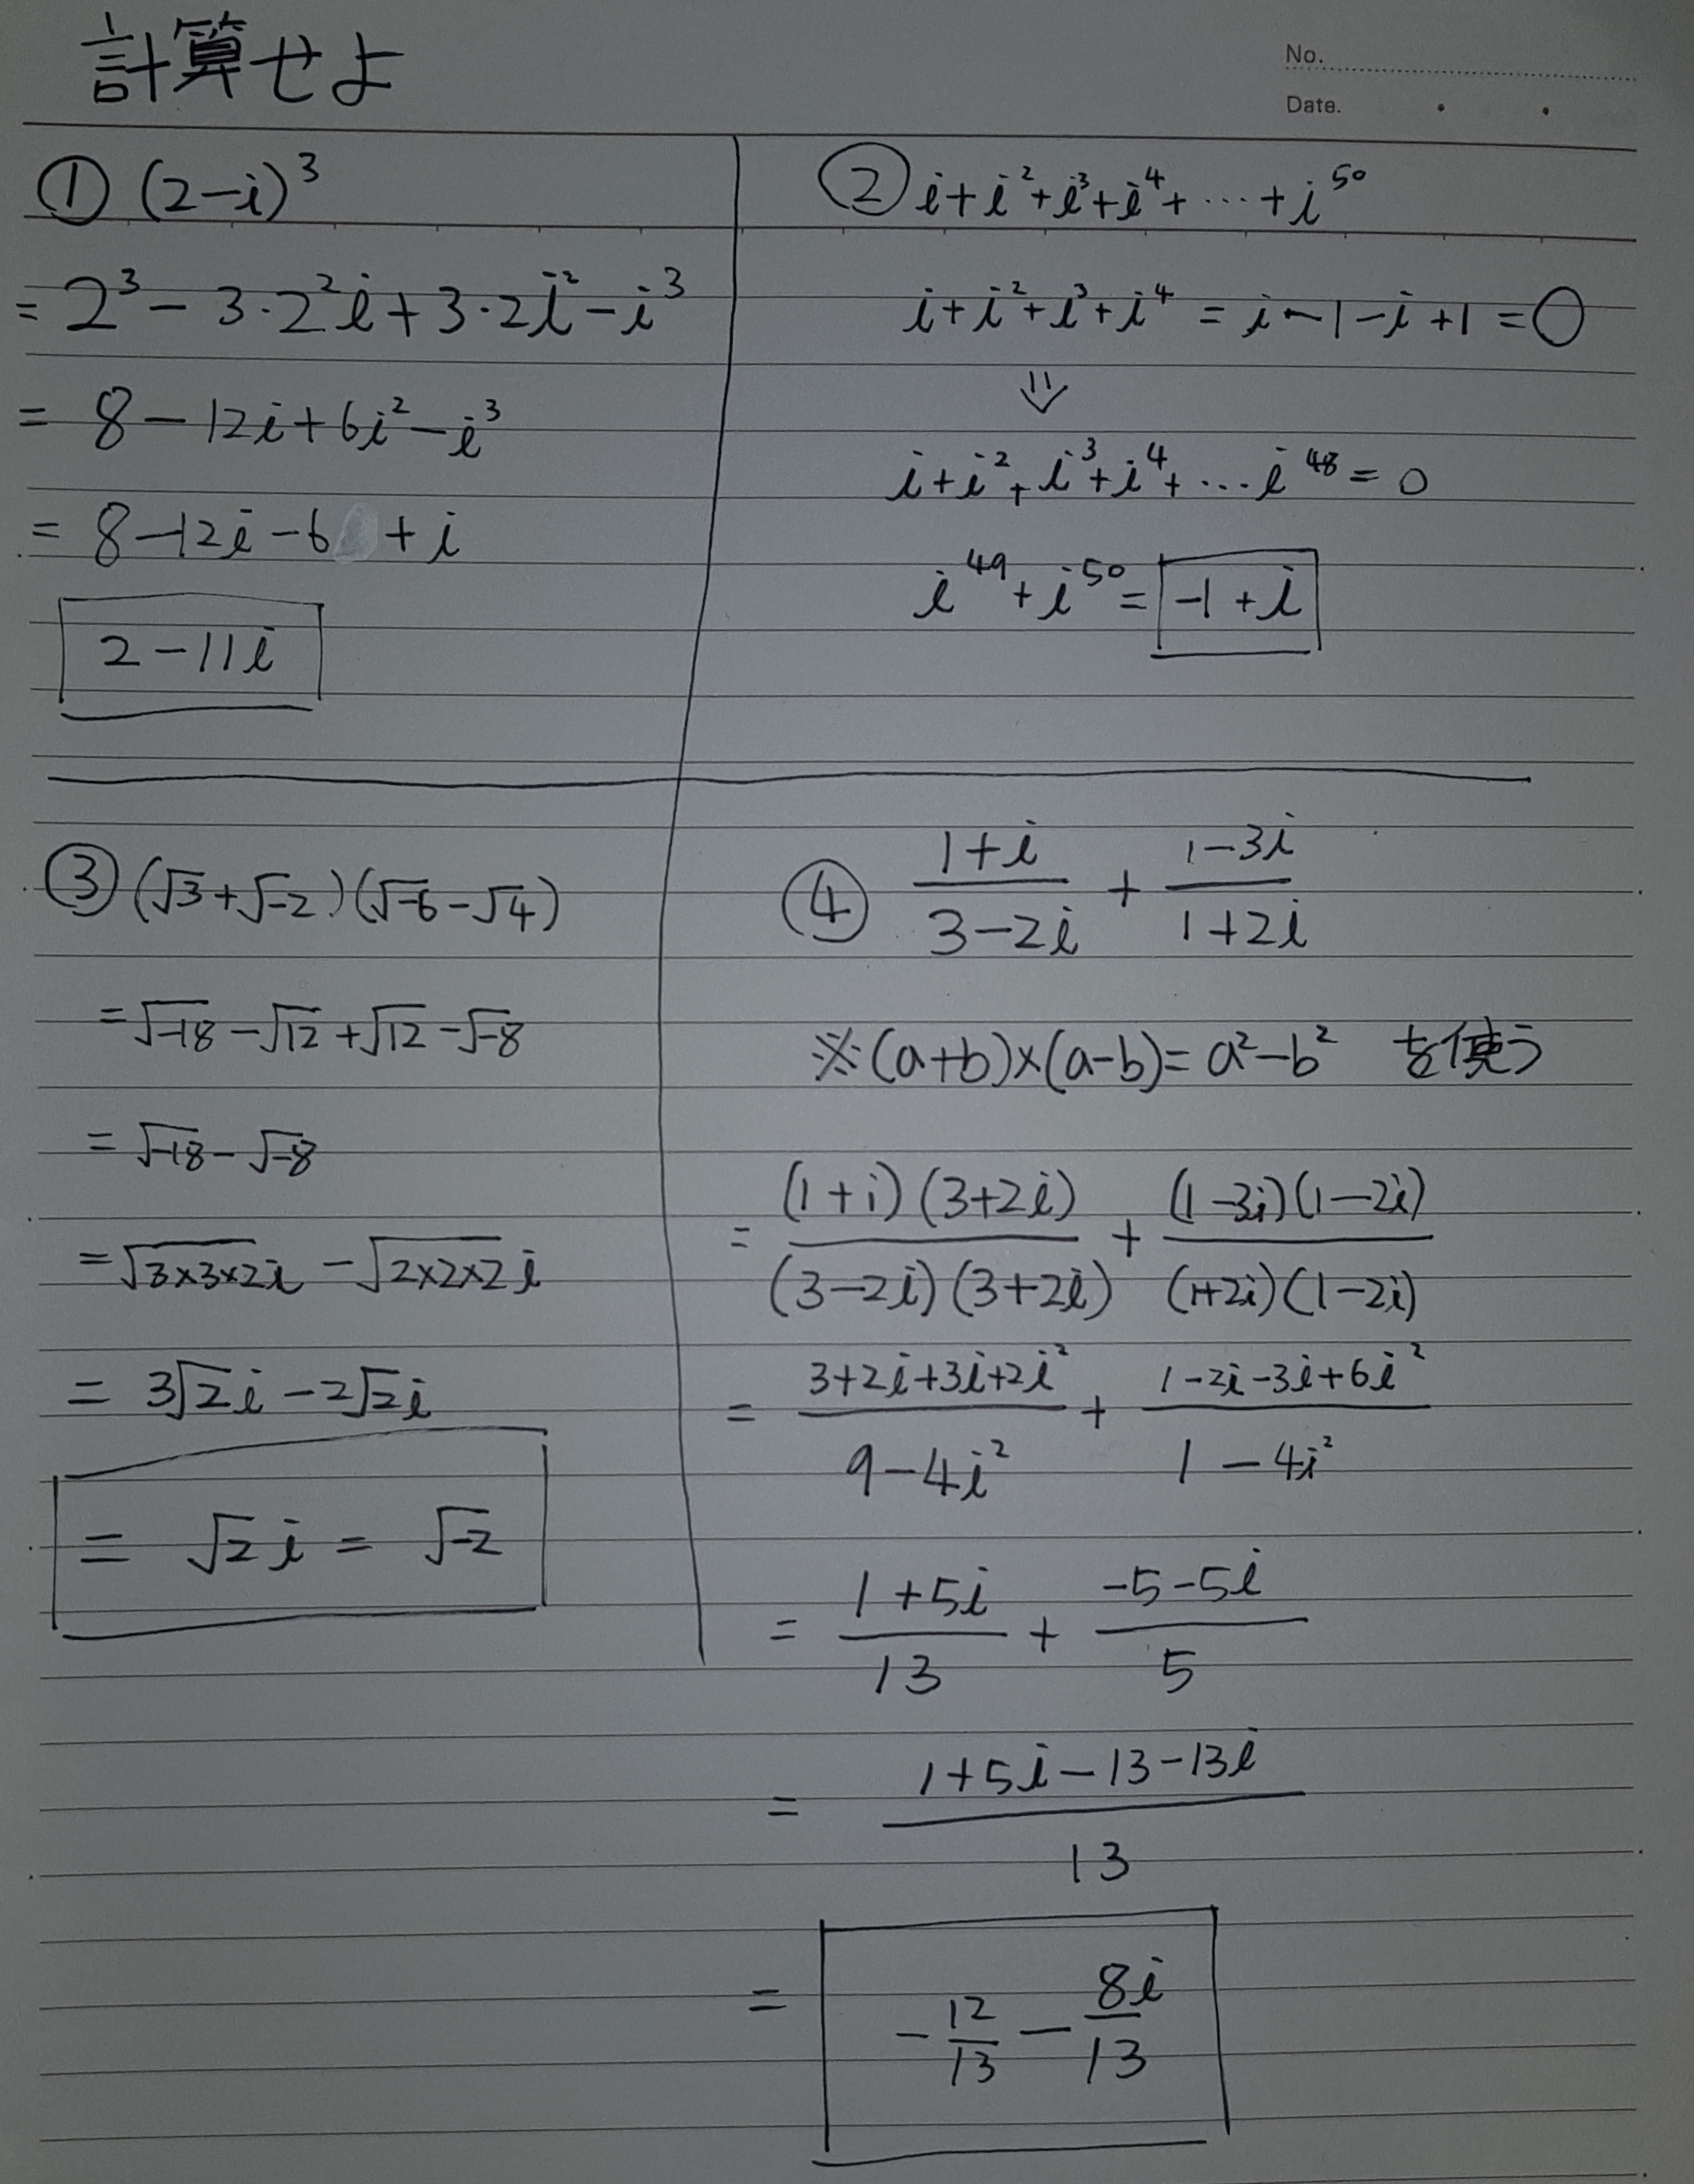 計算せよ
No.
Date.
① (2-i)³
= 2³ - 3·2²i + 3·2i² - i³
= 8 - 12i + 6i² - i³
= 8 - 12i - 6 + i
2 - 11i
② i + i² + i³ + i⁴ + ⋯ + i⁵⁰
i + i² + i³ + i⁴ = i - 1 - i + 1 = 0
⇓
i + i² + i³ + i⁴ + ⋯ i⁴⁸ = 0
i⁴⁹ + i⁵⁰ = -1 + i
③ (√3 + √-2)(√-6 - √4)
= √-18 - √12 + √12 - √-8
= √-18 - √-8
= √3×3×2 i - √2×2×2 i
= 3√2 i - 2√2 i
= √2 i = √-2
④ (1+i)/(3-2i) + (1-3i)/(1+2i)
※(a+b)×(a-b) = a² - b² を使う
= (1+i)(3+2i)/(3-2i)(3+2i) + (1-3i)(1-2i)/(1+2i)(1-2i)
= (3+2i+3i+2i²)/(9-4i²) + (1-2i-3i+6i²)/(1-4i²)
= (1+5i)/13 + (-5-5i)/5
= (1+5i-13-13i)/13
= -12/13 - 8i/13